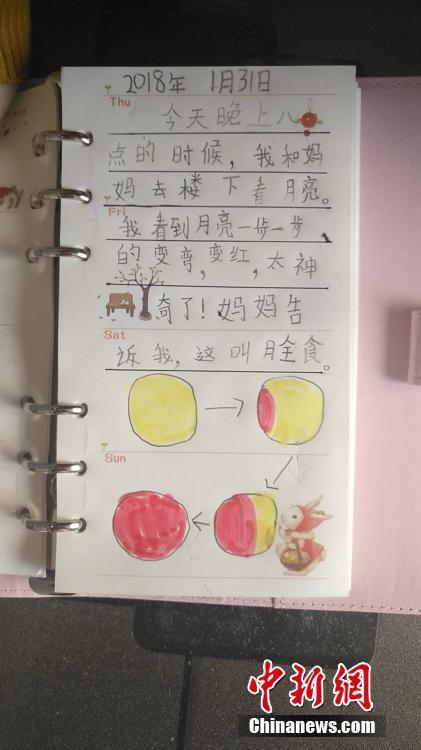 2018年 1月31日
Thu
今天晚上八
点的时候，我和妈
妈去楼下看月亮。
Fri
我看到月亮一步一步
的变弯，变红，太神
奇了！妈妈告
Sat
诉我，这叫月全食。
Sun
中新网
Chinanews.com